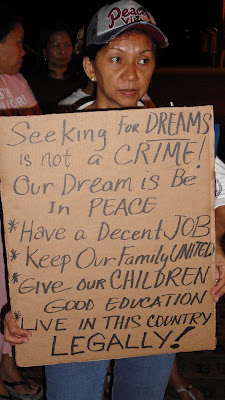 Peace
Seeking for DREAMS
is not a CRIME!
Our Dream is Be
In PEACE
* Have a Decent JOB
* Keep Our Family UNITED
* Give our CHILDREN
GOOD EDUCATION
* LIVE IN THIS COUNTRY
LEGALLY!